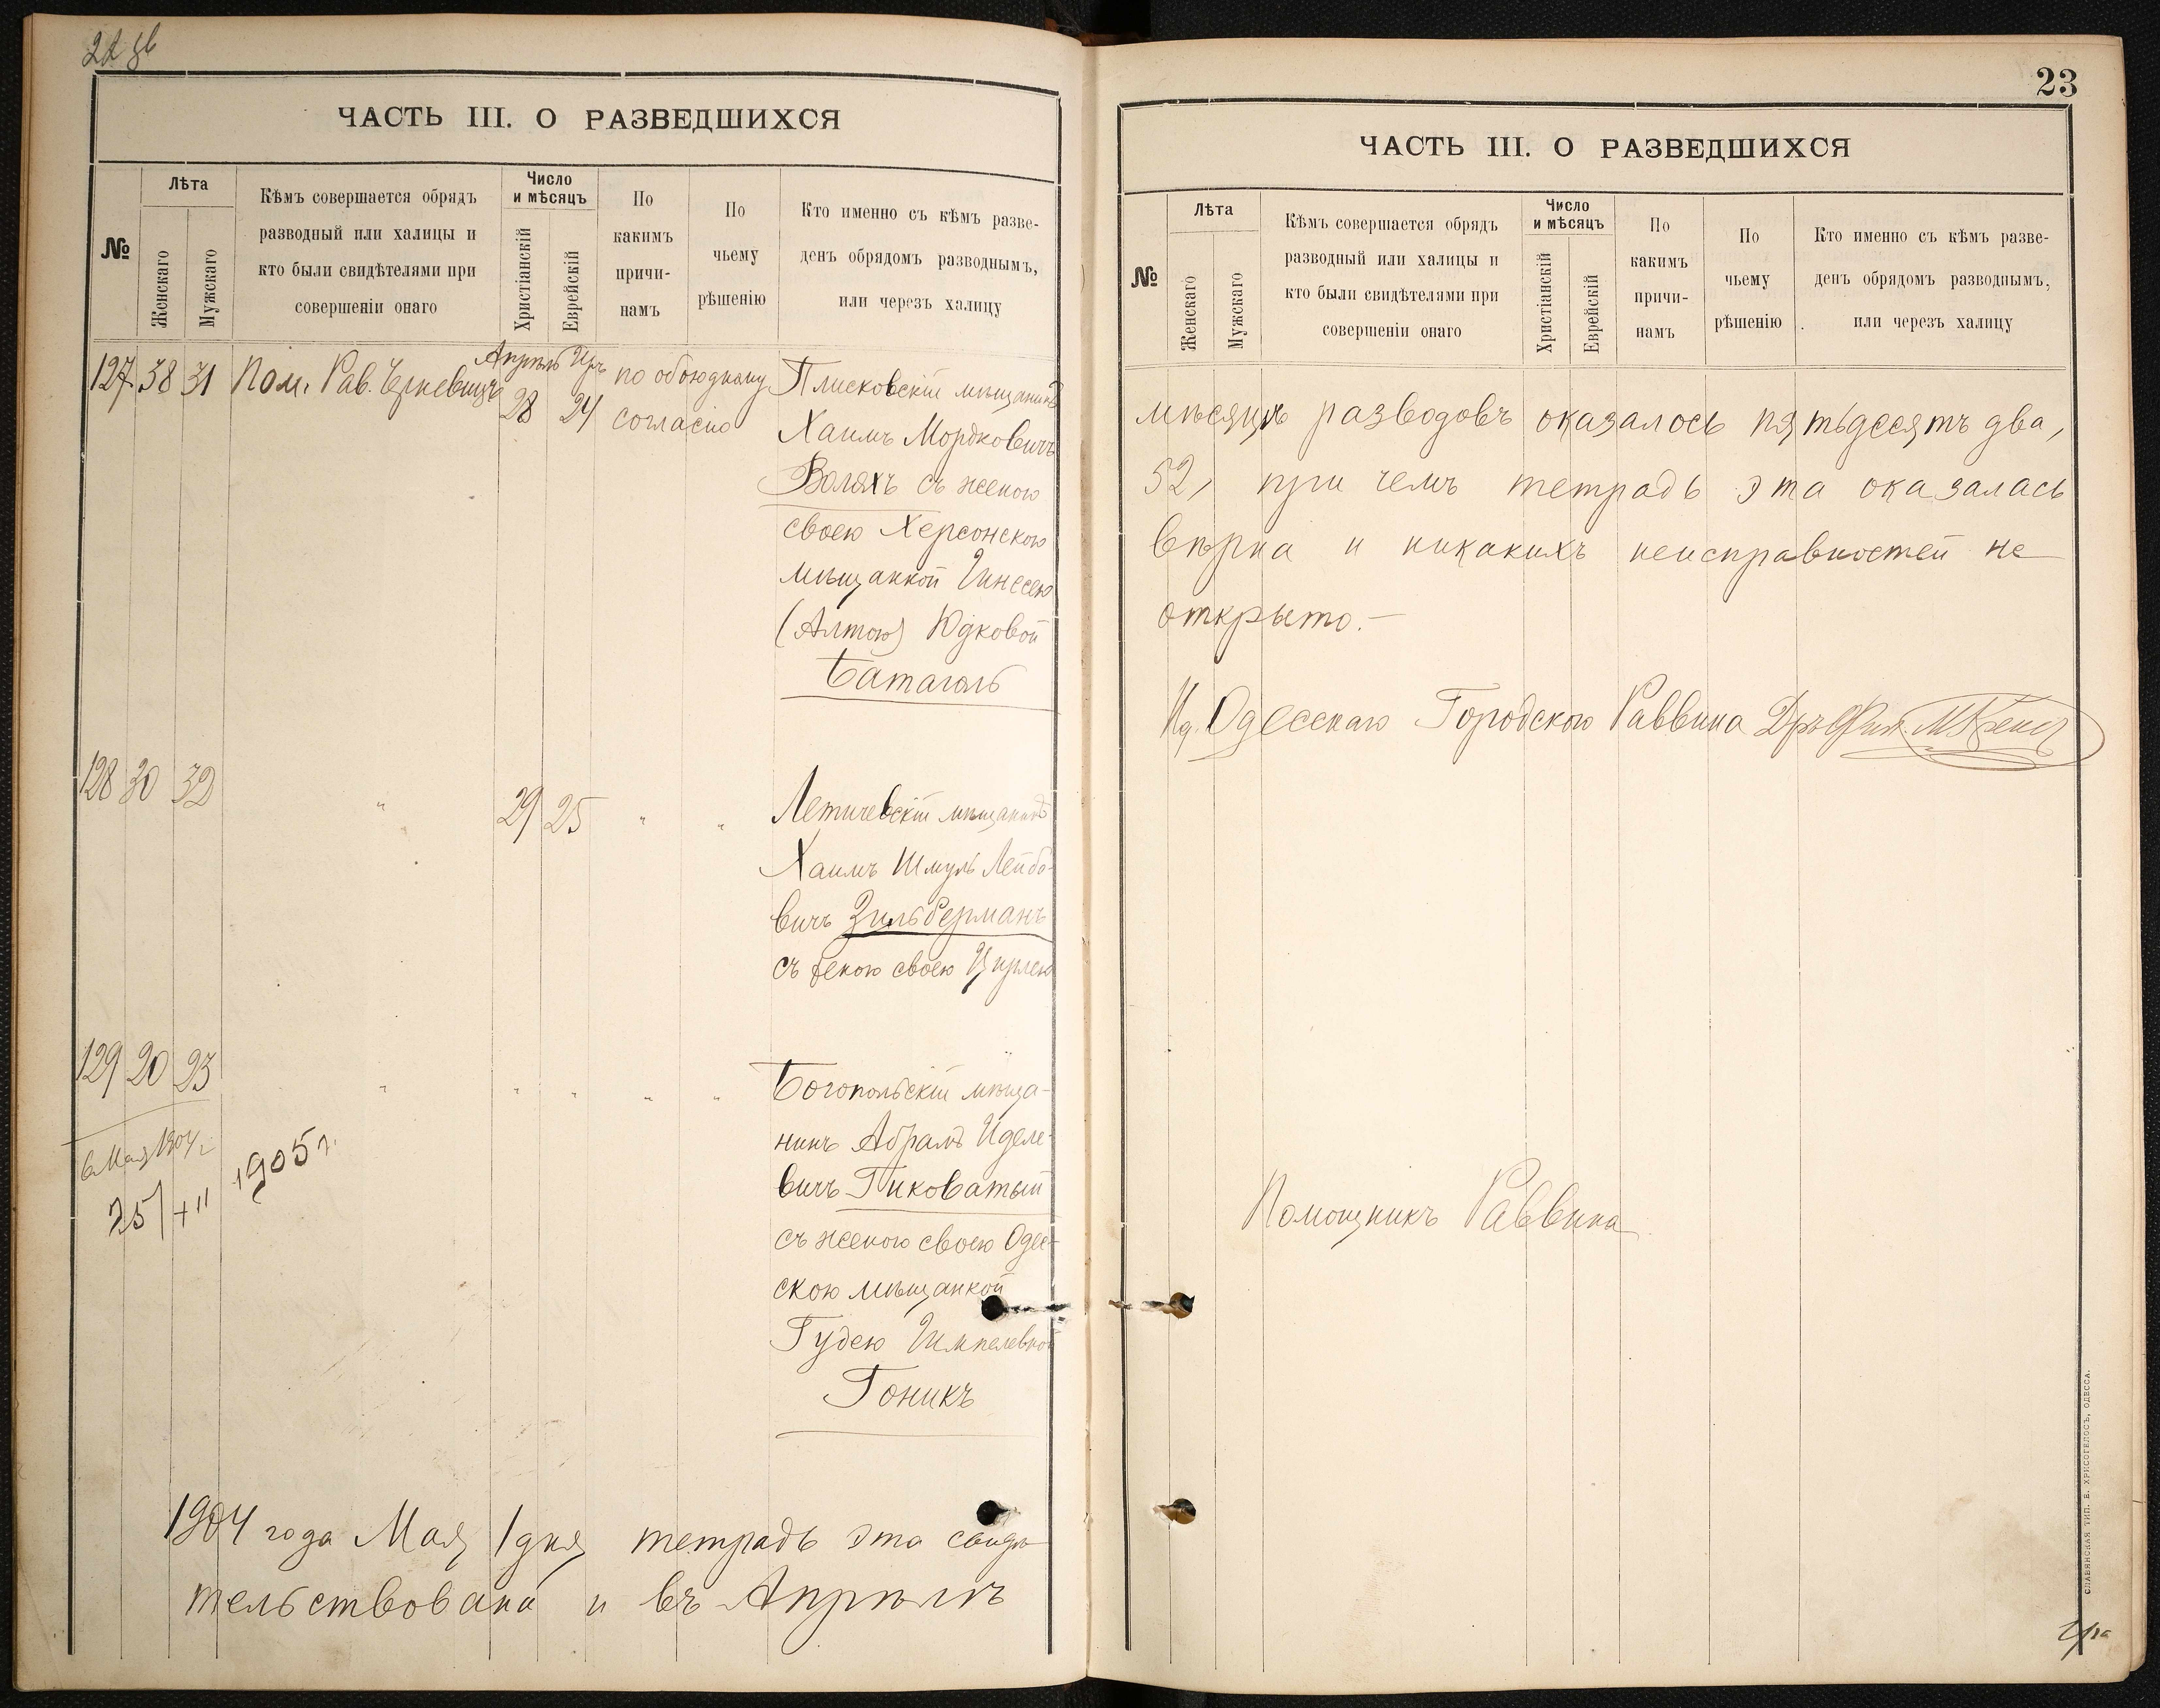 ЧАСТЬ III. О РАЗВЕДШИХСЯ
№
Лѣта
Женскаго
Мужскаго
Кѣмъ совершается обрядъ
разводный или халицы и
кто были свидѣтелями при
совершеніи онаго
Число
и мѣсяцъ
Христіанскій
Еврейскій
По
какимъ
причи-
намъ
По
чьему
рѣшенію
Кто именно съ кѣмъ разве-
денъ обрядомъ разводнымъ,
или черезъ халицу
Апрѣль Иръ
127 38 31 Пом. Рав. 28 24 по обоюдному
согласію
Плисковскій мѣщанинъ
Хаимъ Мордковичъ
Воляхъ съ женою
своею Херсонскою
мѣщанкой
(Алтою) Юдковой
Батаголь
128 30 32 " 29 25 " "
Летичевскій мѣщанинъ
Хаимъ Шмуль Лейбо-
вичъ Зильберманъ
съ женою своею Цирлею
129 20 23 " " " " "
Богопольскій мѣща-
нинъ Абрамъ Иделе-
вичъ Гиковатый
съ женою своею Одес-
скою мѣщанкой
Гудею
Гоникъ
Мая 1904 г.
25/
1905 г.
1904 года Мая 1 дня тетрадь эта свидѣ-
тельствована и въ Апрѣлѣ
23
ЧАСТЬ III. О РАЗВЕДШИХСЯ
№
Лѣта
Женскаго
Мужскаго
Кѣмъ совершается обрядъ
разводный или халицы и
кто были свидѣтелями при
совершеніи онаго
Число
и мѣсяцъ
Христіанскій
Еврейскій
По
какимъ
причи-
намъ
По
чьему
рѣшенію
Кто именно съ кѣмъ разве-
денъ обрядомъ разводнымъ,
или черезъ халицу
мѣсяцѣ разводовъ оказалось пятьдесятъ два,
52, при чемъ тетрадь эта оказалась
вѣрна и никакихъ неисправностей не
открыто.—
Ид. Одесскаго Городского Раввина Дръ
Помощникъ Раввина
СЛАВЯНСКАЯ ТИП. Е. ХРИСОГЕЛОСЪ, ОДЕССА.